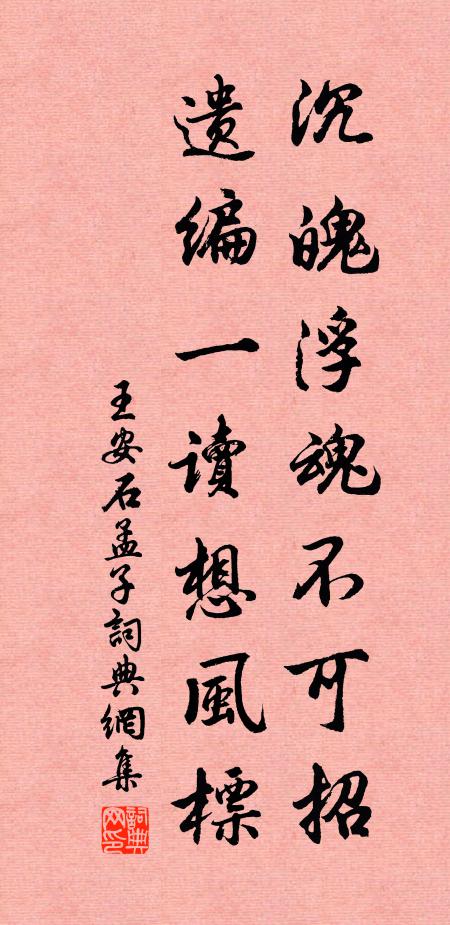 沉魄浮魂不可招
遺編一讀想風標
王安石孟子詞典網集
詞典網印